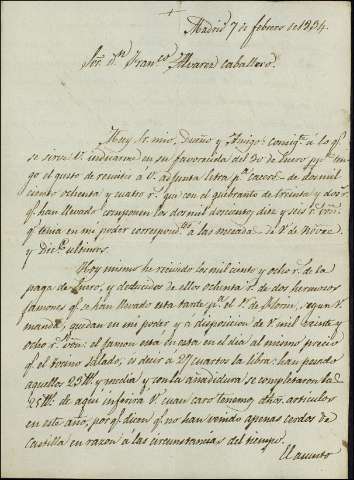 Madrid 7 de febrero de 1834.
Sor. Dn. Franco. Alvarez Caballero.
Muy Sr. mio, Dueño y Amigo: consigte. á lo qe.
se sirve V. indicarme en su favorecida del 30 de Enero ppo. ten-
go el gusto de remitir á V. adjunta letra pa. de dos mil
ciento ochenta y cuatro rs. que con el quebranto de treinta y dos rs.
qe. han llevado componen los dos mil doscientos diez y seis rs. von.
qe. tenia en mi poder correspondtes. á las mesadas de Nove.
y Dice. ultimos.
Hoy mismo he recivido los mil ciento y ocho rs. de la
paga de Enero, y deducidos de ellos ochenta rs. de dos hermosos
jamones qe. se han llevado esta tarde pa. el Sr. de Florin, segun V.
manda, quedan en mi poder y a disposicion de V. mil veinte y
ocho rs. von: el jamon está en esta en el dia al mismo precio
qe. el tocino salado, es decir á 27 cuartos la libra: han pesado
aquellos 23 lls. y media y con la añadidura se completaron las
25 lls.: de aqui inferirá V. cuan caro tenemos dhos. articulos
en este año, por qe. dicen qe. no han venido apenas cerdos de
Castilla en razon á las circunstancias del tiempo.
El asunto